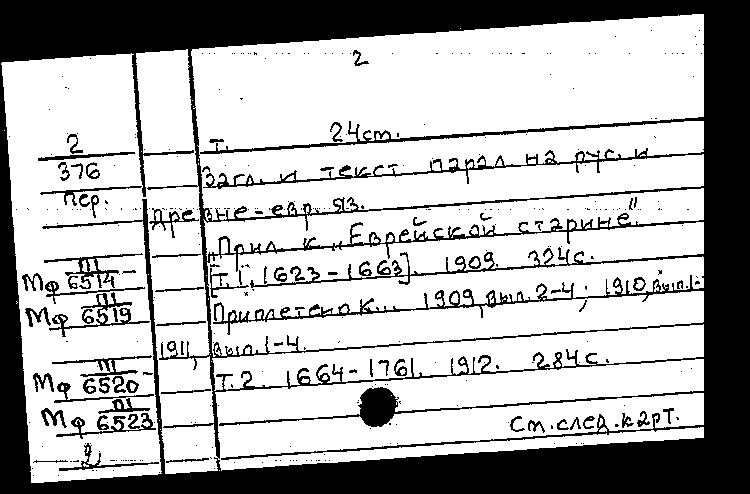 2
2 т. 24см.
376 Загл. и текст парал. на рус. и
пер. древне-евр. яз.
"Прил. к „Еврейской старине".
Мф III 6514- [Т. I, 1623-1663]. 1909. 324с.
Мф III 6519 Приплетено к... 1909, вып. 2-4; 1910, вып. 1-
1911, вып. 1-4.
Мф III 6520- Т. 2. 1664-1761. 1912. 284с.
Мф III 6523
См. след. карт.